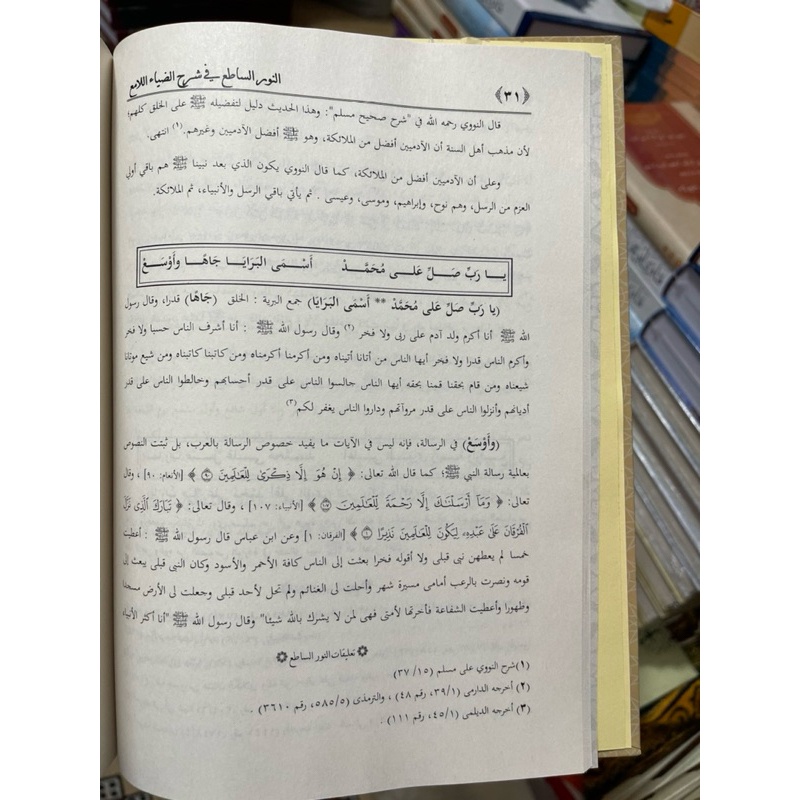 النور الساطع في شرح الضياء اللامع
﴿٣١﴾
قال النووي رحمه الله في "شرح صحيح مسلم": وهذا الحديث دليل لتفضيله ﷺ على الخلق كلهم؛
لأن مذهب أهل السنة أن الآدميين أفضل من الملائكة، وهو ﷺ أفضل الآدميين وغيرهم.(١) انتهى.
وعلى أن الآدميين أفضل من الملائكة، كما قال النووي يكون الذي بعد نبينا ﷺ هم باقي أولي
العزم من الرسل، وهم نوح، وإبراهيم، وموسى، وعيسى . ثم يأتي باقي الرسل والأنبياء، ثم الملائكة.
يـا رَبِّ صَـلِّ عَلـى مُحَمَّـدْ أَسْـمَى البَـرَايَـا جَاهًـا وأَوْسَـعْ
(يا رَبِّ صَلِّ عَلى مُحَمَّدْ ** أَسْمَى البَرَايَا) جمع البرية : الخلق (جَاهًا) قدرا، وقال رسول
الله ﷺ أنا أكرم ولد آدم على ربى ولا فخر (٢) وقال رسول الله ﷺ : أنا أشرف الناس حسبا ولا فخر
وأكرم الناس قدرا ولا فخر أيها الناس من أتانا أتيناه ومن أكرمنا أكرمناه ومن كاتبنا كاتبناه ومن شيع موتانا
شيعناه ومن قام بحقنا قمنا بحقه أيها الناس جالسوا الناس على قدر أحسابهم وخالطوا الناس على قدر
أديانهم وأنزلوا الناس على قدر مروآتهم وداروا الناس يغفر لكم(٣)
(وأَوْسَعْ) في الرسالة، فإنه ليس في الآيات ما يفيد خصوص الرسالة بالعرب، بل ثبتت النصوص
بعالمية رسالة النبي ﷺ؛ كما قال الله تعالى: ﴿ إِنْ هُوَ إِلَّا ذِكْرَىٰ لِلْعَالَمِينَ ٩٠ ﴾ [الأنعام: ٩٠] ، وقال
تعالى: ﴿ وَمَا أَرْسَلْنَاكَ إِلَّا رَحْمَةً لِلْعَالَمِينَ ١٠٧ ﴾ [الأنبياء: ١٠٧] ، وقال تعالى: ﴿ تَبَارَكَ الَّذِي نَزَّلَ
الْفُرْقَانَ عَلَىٰ عَبْدِهِ لِيَكُونَ لِلْعَالَمِينَ نَذِيرًا ١ ﴾ [الفرقان: ١] وعن ابن عباس قال رسول الله ﷺ : أعطيت
خمسا لم يعطهن نبى قبلى ولا أقوله فخرا بعثت إلى الناس كافة الأحمر والأسود وكان النبى قبلى يبعث إلى
قومه ونصرت بالرعب أمامى مسيرة شهر وأحلت لى الغنائم ولم تحل لأحد قبلى وجعلت لى الأرض مسجدا
وطهورا وأعطيت الشفاعة فأخرتها لأمتى فهى لمن لا يشرك بالله شيئا" وقال رسول الله ﷺ "أنا أكثر الأنبياء
تعليقات النور الساطع
(١) شرح النووي على مسلم (١٥/ ٣٧)
(٢) أخرجه الدارمى (٣٩/١، رقم ٤٨) ، والترمذى (٥٨٥/٥، رقم ٣٦١٠) .
(٣) أخرجه الديلمى (٤٥/١، رقم ١١١) .